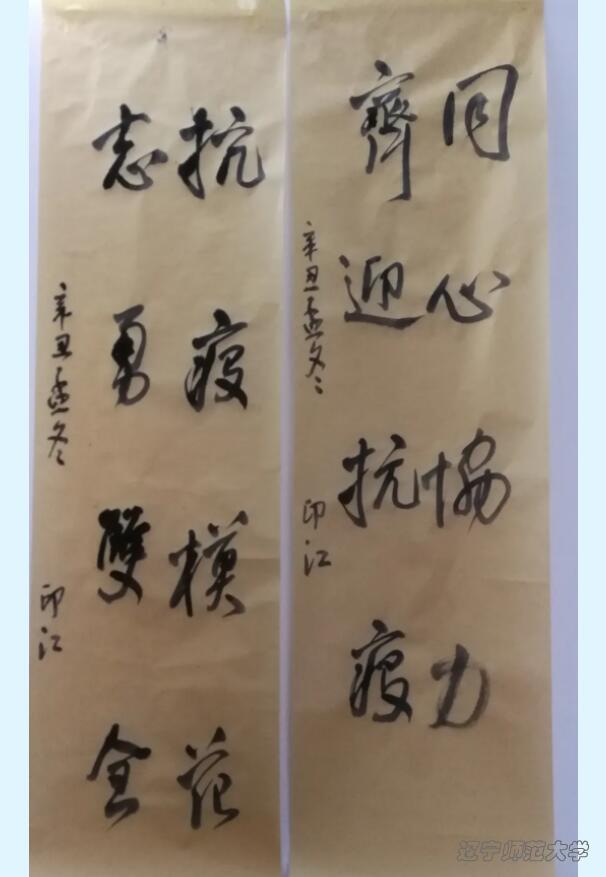 同心協力
齊迎抗疫
辛丑孟冬
印江
抗疫模范
志勇雙全
辛丑孟冬
印江
辽宁师范大学